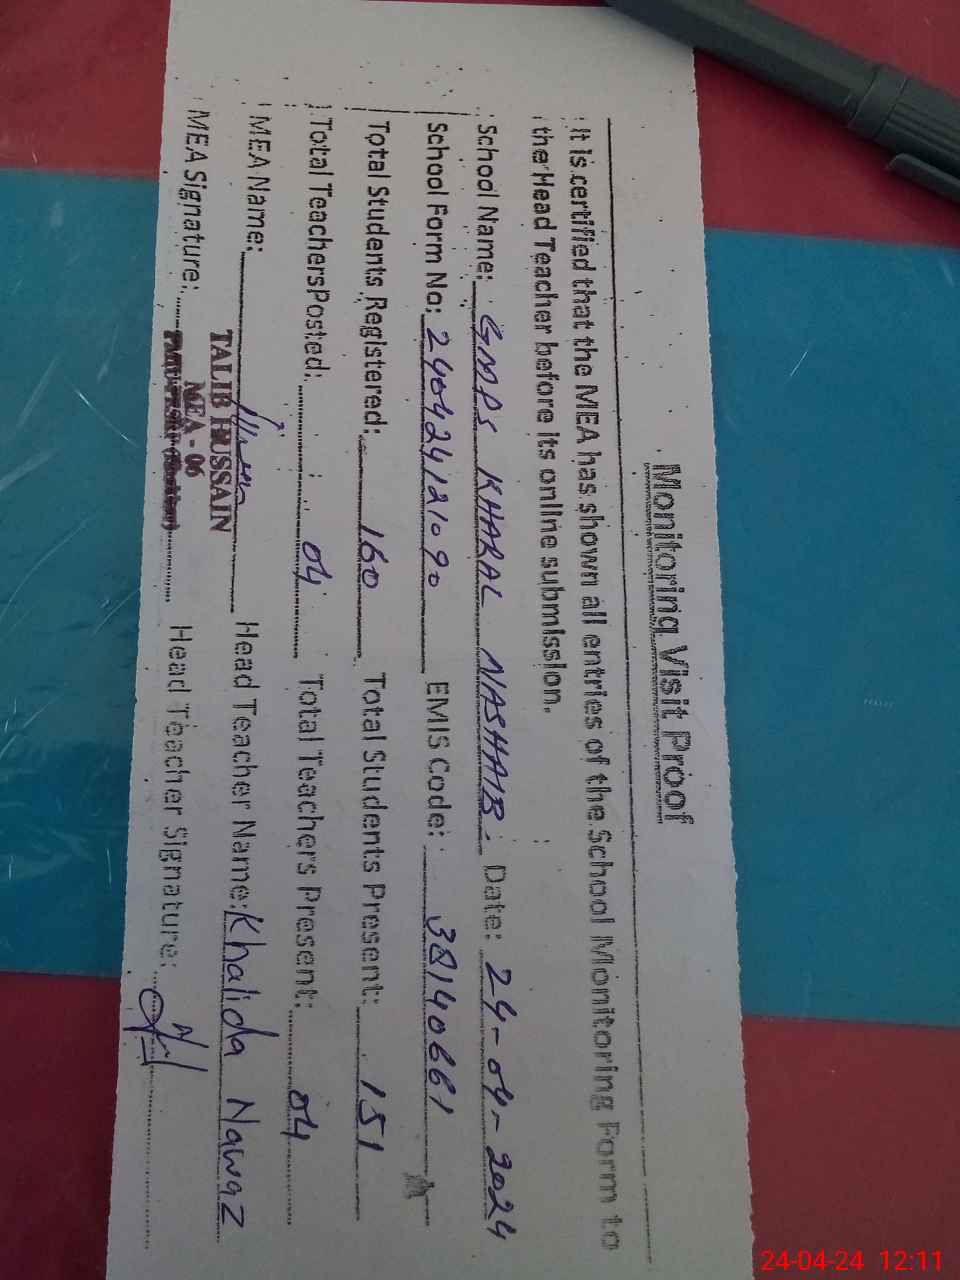 Monitoring Visit Proof
It is certified that the MEA has shown all entries of the School Monitoring Form to
the Head Teacher before its online submission.
School Name: GMPS KHARAL NASHAIB. Date: 24-04-2024
School Form No: 240424121090 EMIS Code: 38140661
Total Students Registered: 160 Total Students Present: 151
Total Teachers Posted: 04 Total Teachers Present: 04
MEA Name: Head Teacher Name: Khalida Nawaz
MEA Signature: Head Teacher Signature:
TALIB HUSSAIN
MEA - 06
24-04-24 12:11